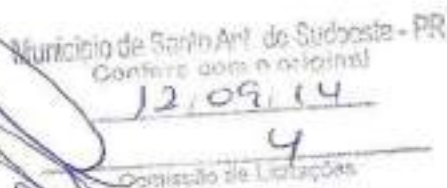 Município de Santo Ant. do Sudoeste - PR
Confere com o original
12,09,14
4
Comissão de Licitações